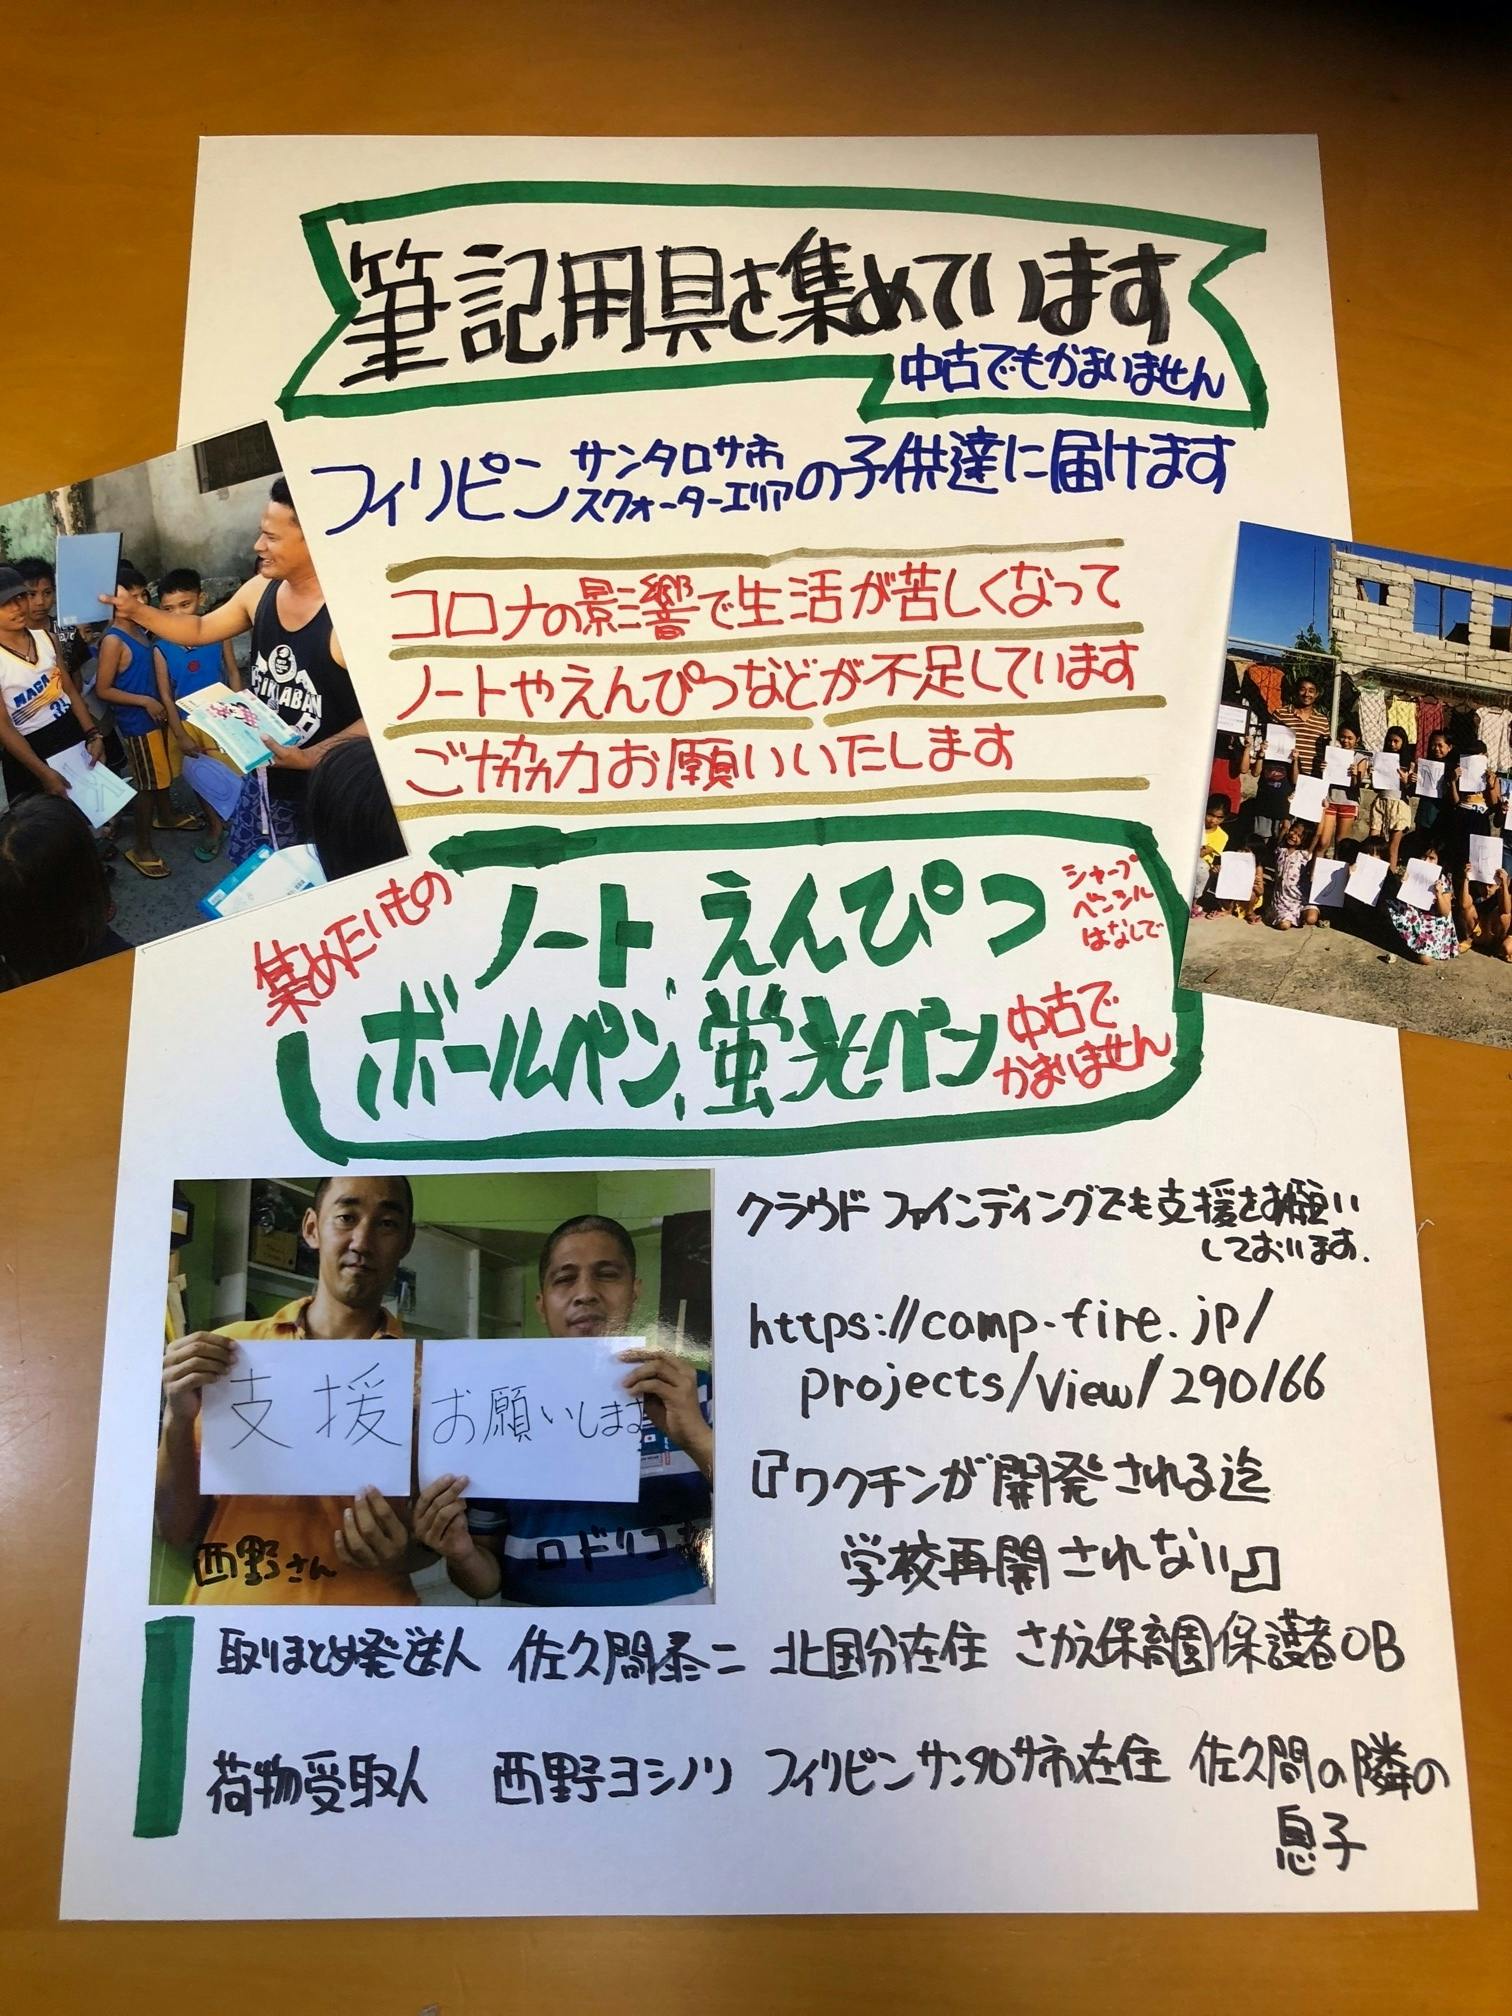 筆記用具を集めています
中古でもかまいません
フィリピン サンタロサ市 スクォーターエリアの子供達に届けます
コロナの影響で生活が苦しくなって
ノートやえんぴつなどが不足しています
ご協力お願いいたします
集めたいもの
ノート、えんぴつ
シャープ
ペンシル
はなしで
ボールペン、蛍光ペン
中古で
かまいません
クラウドファインディングでも支援をお願い
しております.
https://camp-fire.jp/
projects/view/290166
『ワクチンが開発される迄
学校再開されない』
支援 お願いします
西野さん
ロドリゴさん
取りまとめ発送人 佐久間泰二 北国分在住 さかえ保育園保護者OB
荷物受取人 西野ヨシノリ フィリピンサンタロサ市在住 佐久間の隣の
息子